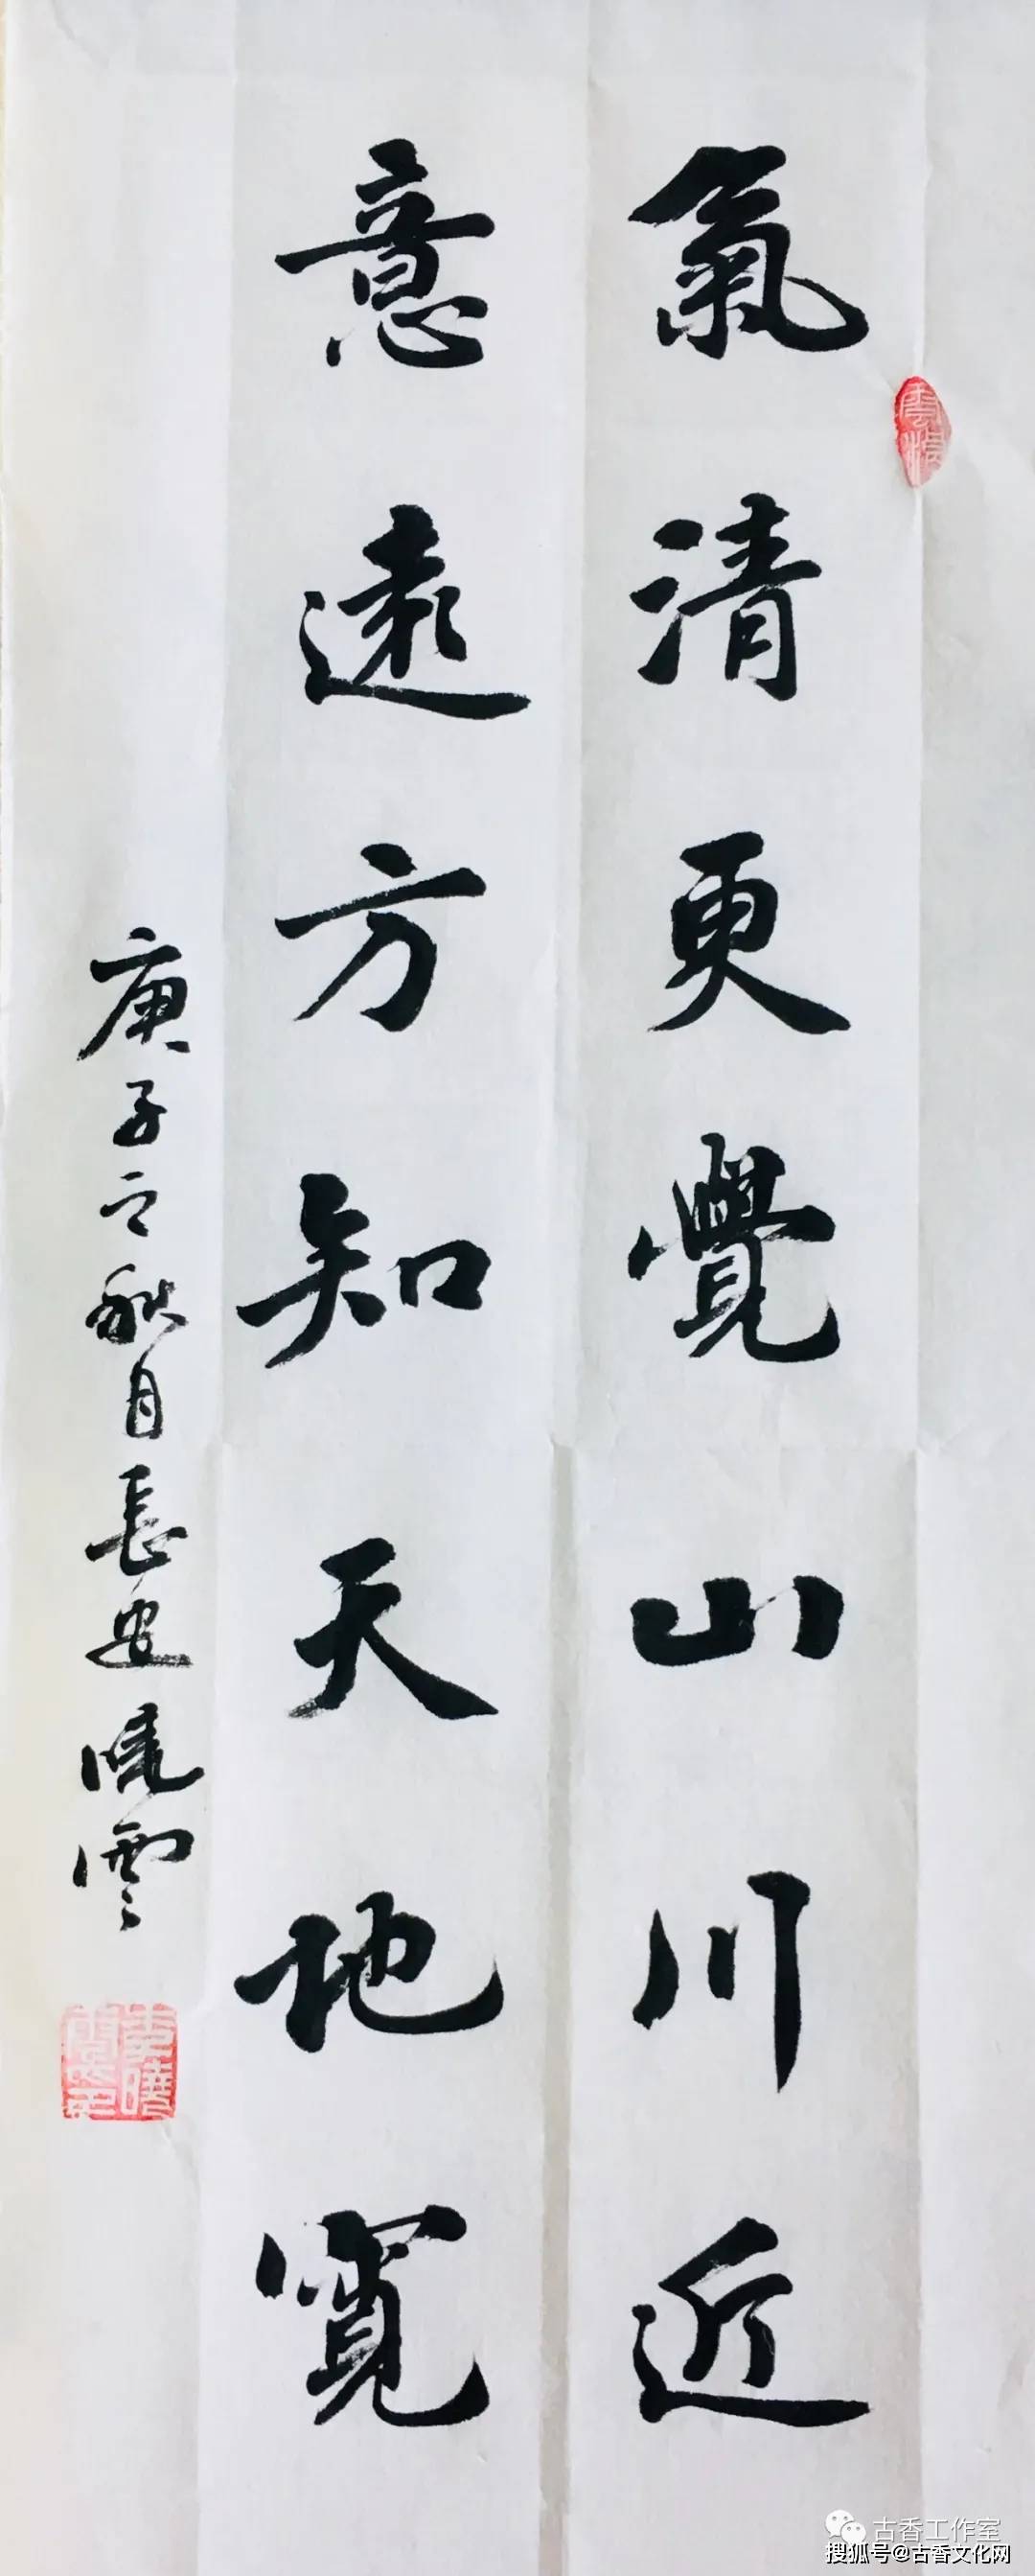 氣清更覺山川近
意遠方知天地寬
庚子之秋月長安曉雲
古香工作室
搜狐号@古香文化网